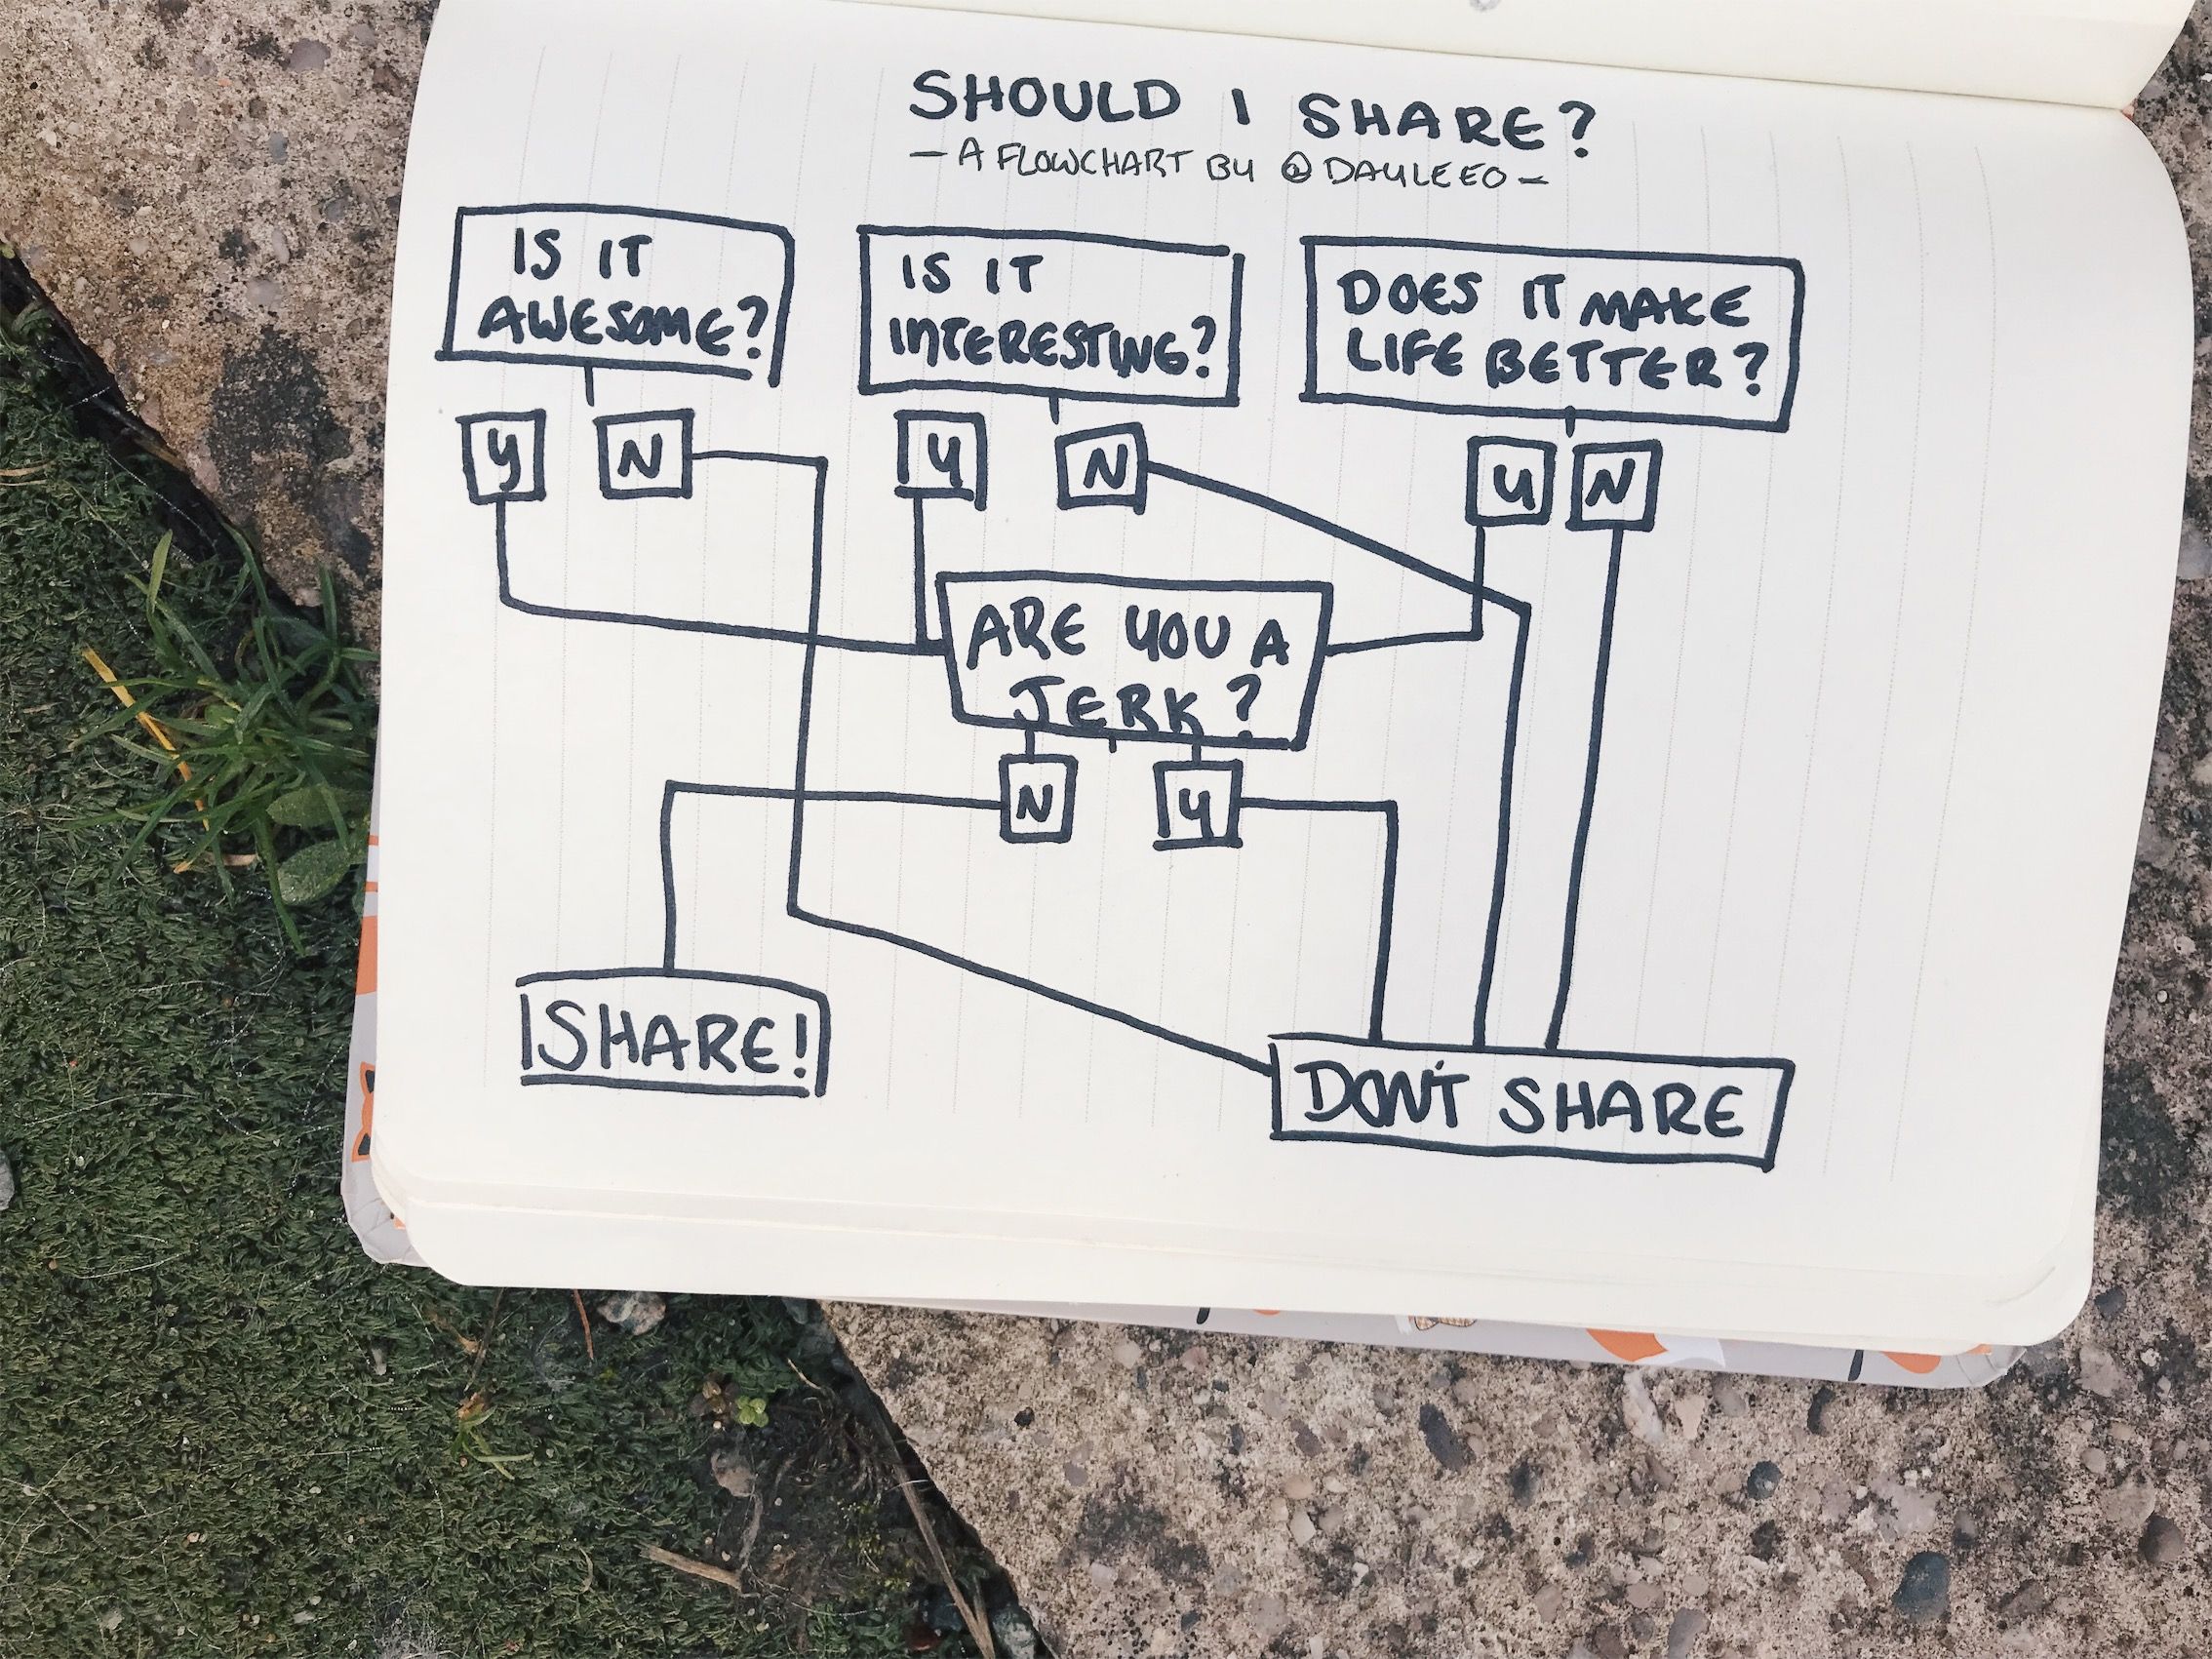 SHOULD I SHARE?
- A FLOWCHART BY @DAYLEEO -
IS IT
AWESOME?
Y N
IS IT
INTERESTING?
Y N
DOES IT MAKE
LIFE BETTER?
Y N
ARE YOU A
JERK?
N Y
SHARE!
DON'T SHARE